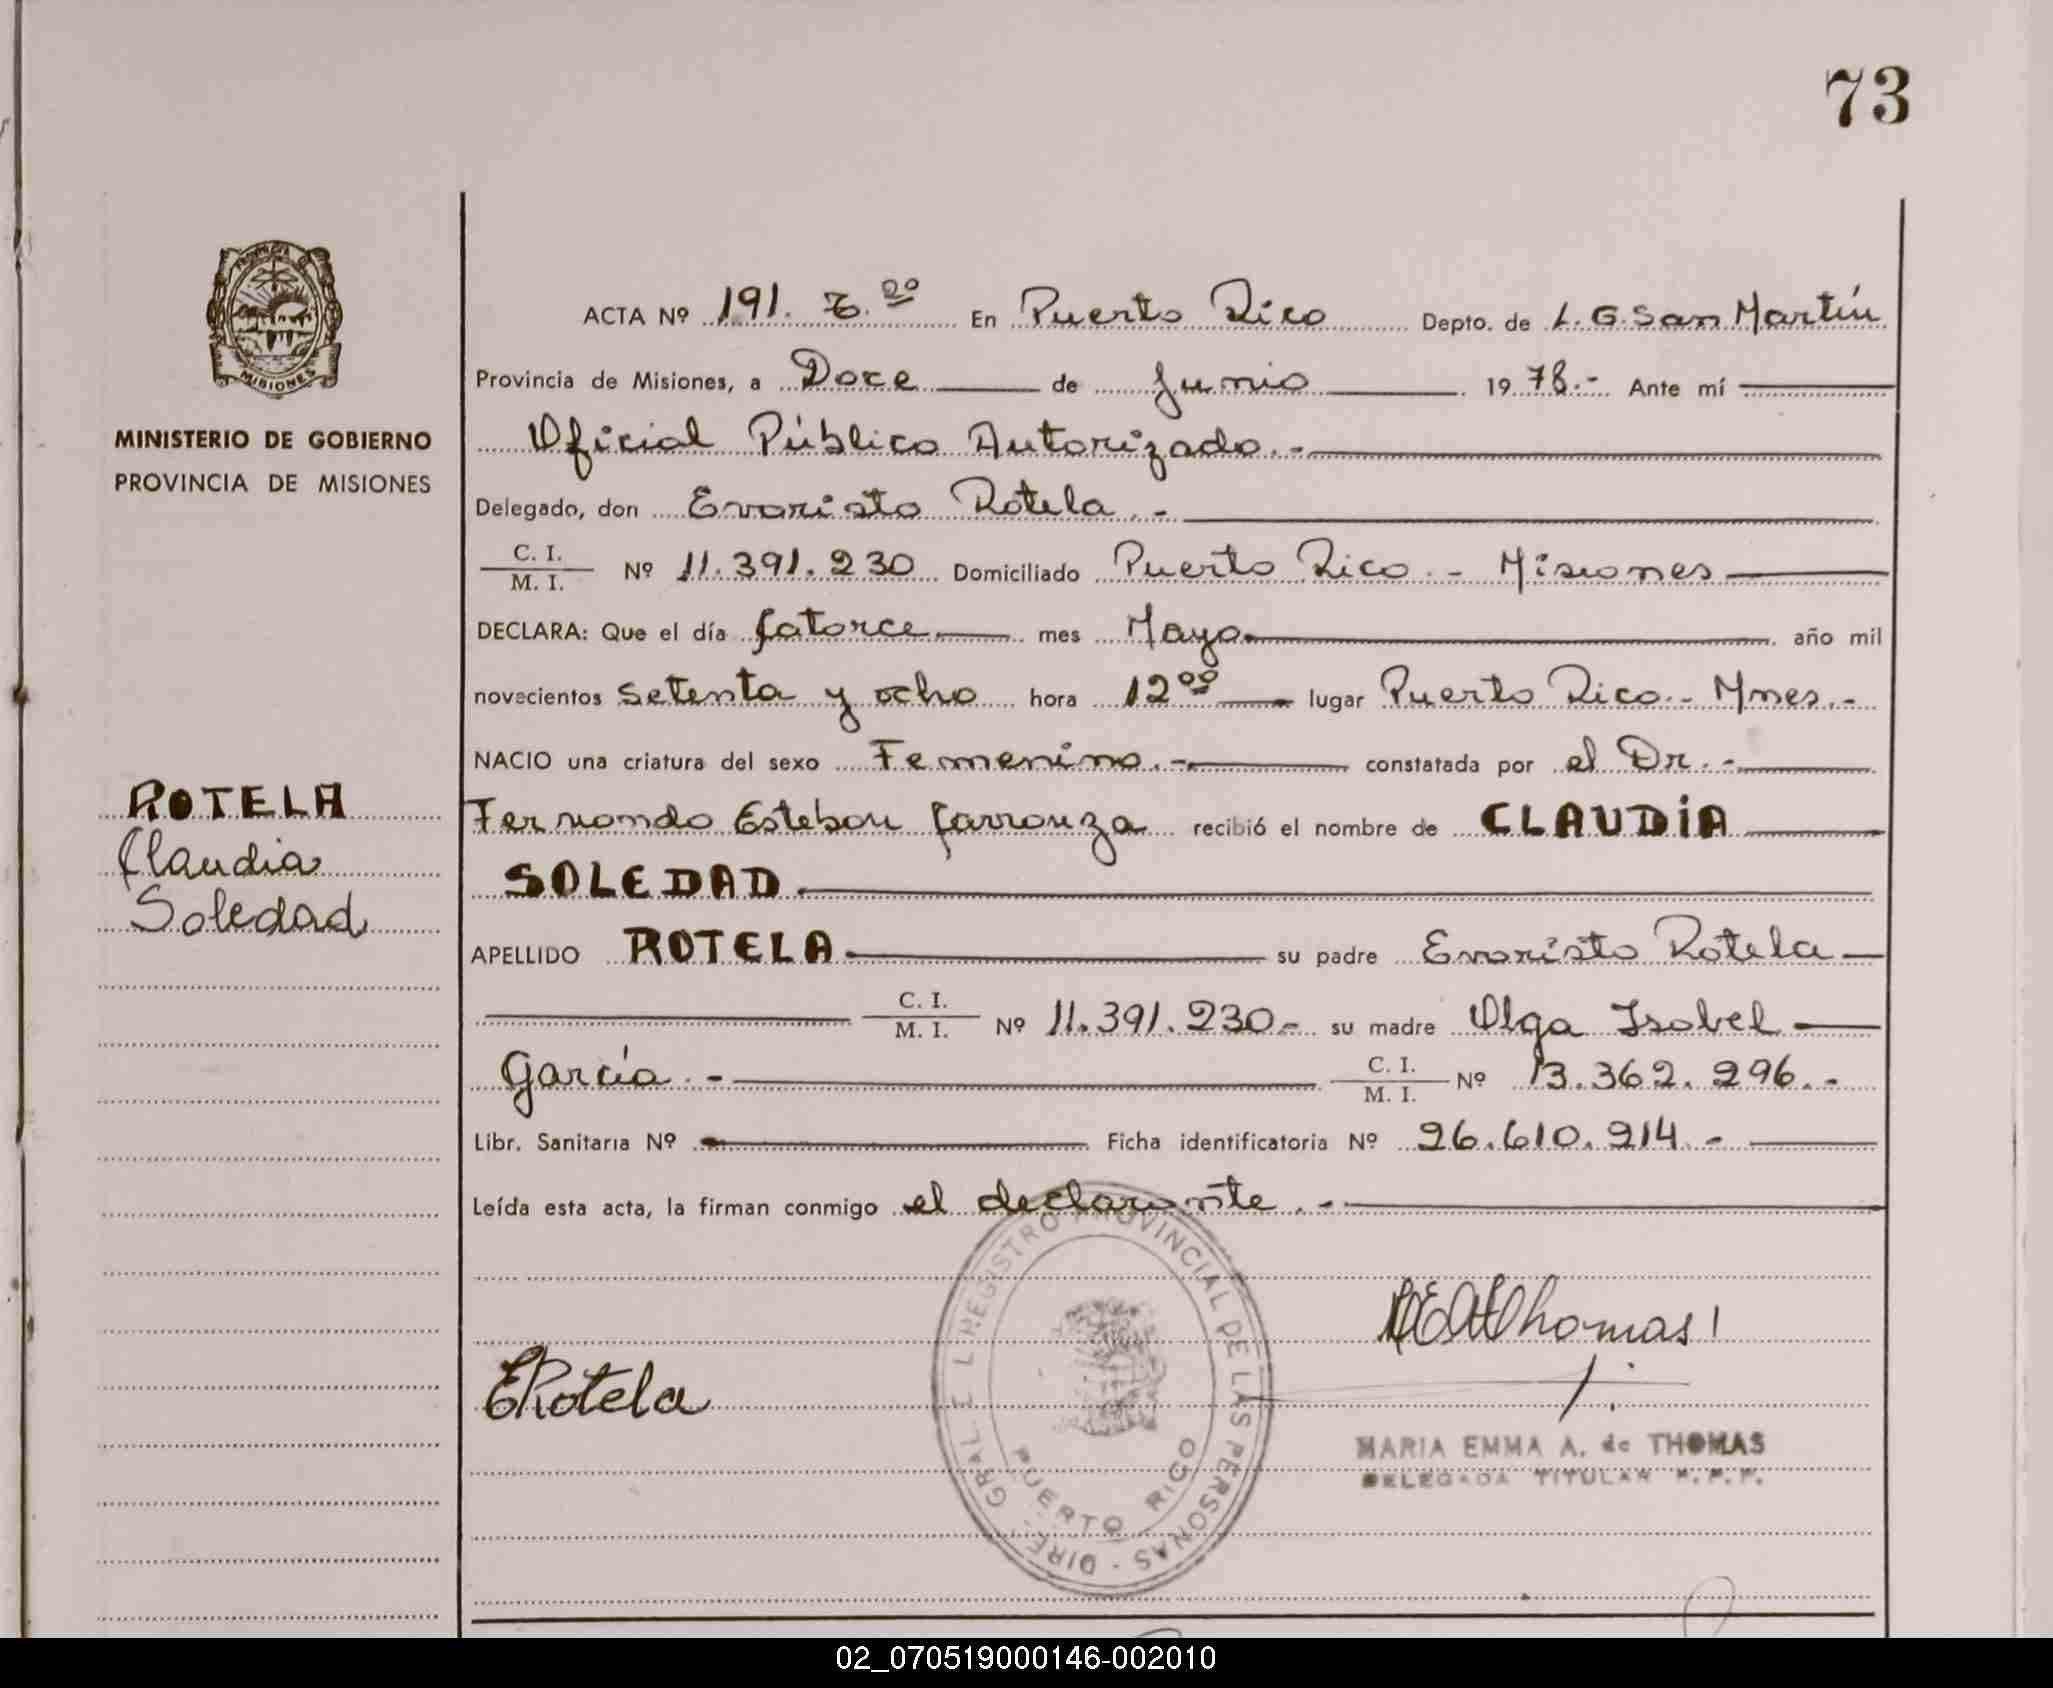 73
PROVINCIA DE
MISIONES
MINISTERIO DE GOBIERNO
PROVINCIA DE MISIONES
ROTELA
Claudia
Soledad
ACTA Nº 191. To. 2º En Puerto Rico Depto. de L. G. San Martín
Provincia de Misiones, a Doce de Junio 1978.- Ante mí
Oficial Público Autorizado.-
Delegado, don Evaristo Rotela.-
C. I.
M. I. Nº 11.391.230 Domiciliado Puerto Rico.- Misiones
DECLARA: Que el día Catorce mes Mayo año mil
novecientos setenta y ocho hora 12ºº lugar Puerto Rico.- Mnes.-
NACIO una criatura del sexo Femenino.- constatada por el Dr.-
Fernando Esteban Carranza recibió el nombre de CLAUDIA
SOLEDAD.
APELLIDO ROTELA su padre Evaristo Rotela
C. I.
M. I. Nº 11.391.230.- su madre Olga Isabel
García.- C. I.
M. I. Nº 13.362.296.-
Libr. Sanitaria Nº Ficha identificatoria Nº 26.610.214.-
Leída esta acta, la firman conmigo el declarante.-
DIRE. GRAL. REGISTRO PROVINCIAL DE LAS PERSONAS -
PUERTO RICO
ERotela
Thomas
MARIA EMMA A. de THOMAS
DELEGADA TITULAR R. P. P.
02_070519000146-002010